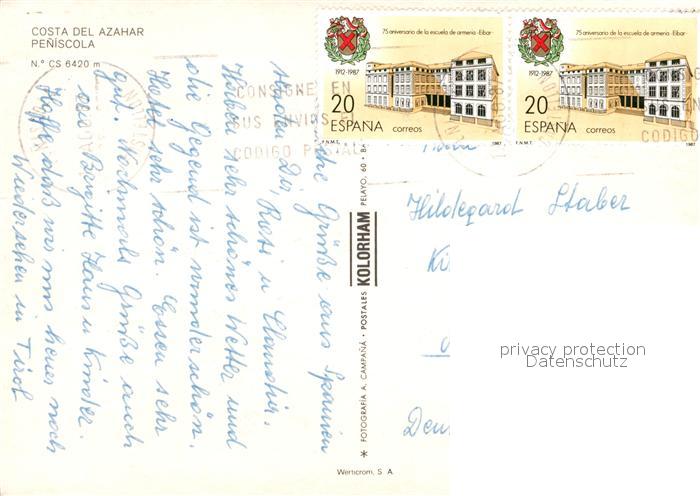 COSTA DEL AZAHAR
PEÑISCOLA
N.° CS 6420 m
Grüße aus Spanien
Dir, Rosi u.
Haben sehr schönes Wetter und
die Gegend ist wunderschön.
Hotel sehr schön. Essen sehr
gut. Nochmals Grüße auch
Brigitte Hans u Kinder.
Hoffe daß wir uns heuer noch
Wiedersehen in Tirol
CONSIGNE EN
SUS ENVIOS EL
CODIGO POSTAL
FOTOGRAFIA A. CAMPAÑÁ • POSTALES KOLORHAM PELAYO, 60 • BA
Werticrom, S. A.
75 aniversario de la escuela de armería -Eibar-
1912-1987
20
ESPAÑA correos
F.N.M.T. 1987
75 aniversario de la escuela de armería -Eibar-
1912-1987
20
ESPAÑA correos
F.N.M.T. 1987
CODIGO
Hildegard Staber
privacy protection
Datenschutz
Deu